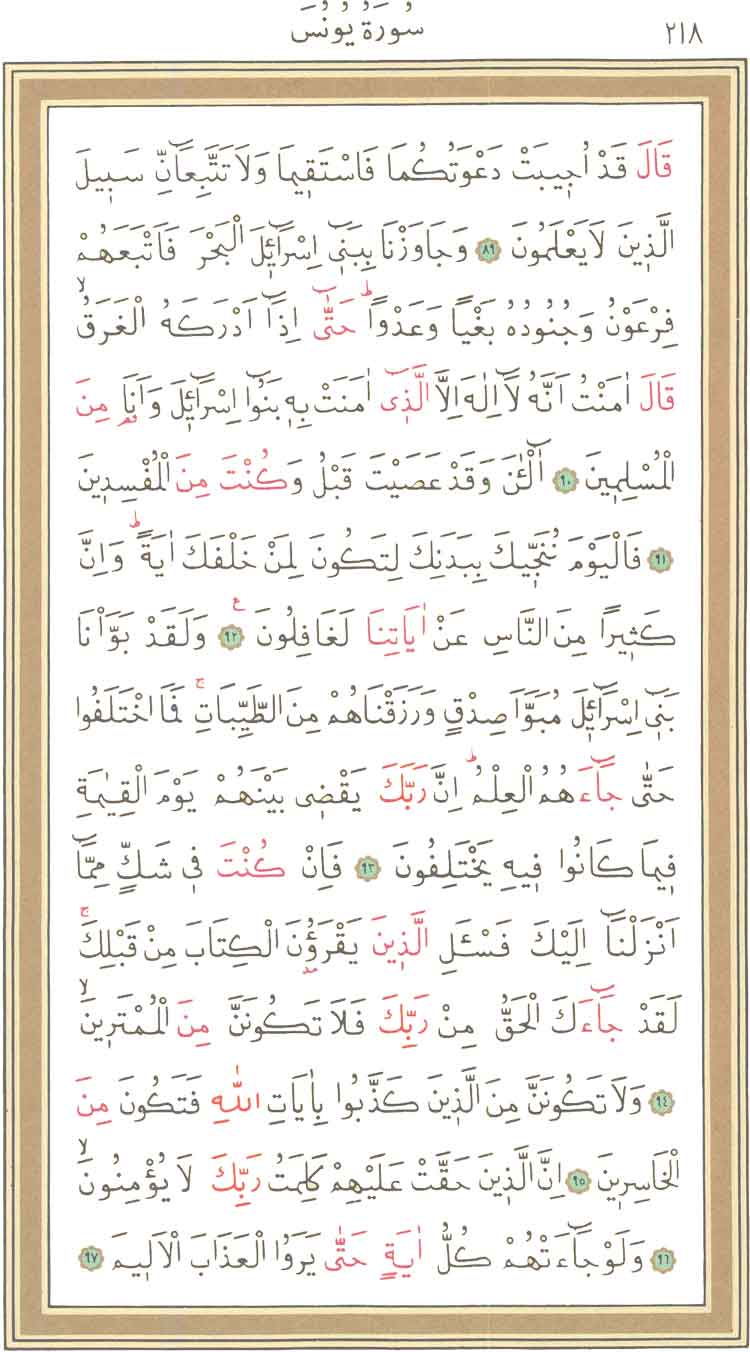 سُورَةُ يُونُسَ ٢١٨
قَالَ قَدْ اُج۪يبَتْ دَعْوَتُكُمَا فَاسْتَق۪يمَا وَلَا تَتَّبِعَٓانِّ سَب۪يلَ
الَّذ۪ينَ لَا يَعْلَمُونَ ﴿٨٩﴾ وَجَاوَزْنَا بِبَن۪ٓي اِسْرَٓائ۪لَ الْبَحْرَ فَاَتْبَعَهُمْ
فِرْعَوْنُ وَجُنُودُهُ بَغْيًا وَعَدْوًاۜ حَتّٰٓى اِذَٓا اَدْرَكَهُ الْغَرَقُۙ
قَالَ اٰمَنْتُ اَنَّهُ لَٓا اِلٰهَ اِلَّا الَّذ۪ٓي اٰمَنَتْ بِه۪ بَنُٓوا اِسْرَٓائ۪لَ وَاَنَا۬ مِنَ
الْمُسْلِم۪ينَ ﴿٩٠﴾ آٰلْـٰٔنَ وَقَدْ عَصَيْتَ قَبْلُ وَكُنْتَ مِنَ الْمُفْسِد۪ينَ
﴿٩١﴾ فَالْيَوْمَ نُنَجّ۪يكَ بِبَدَنِكَ لِتَكُونَ لِمَنْ خَلْفَكَ اٰيَةًۜ وَاِنَّ
كَث۪يرًا مِنَ النَّاسِ عَنْ اٰيَاتِنَا لَغَافِلُونَ ﴿٩٢﴾ ع وَلَقَدْ بَوَّأْنَا
بَن۪ٓي اِسْرَٓائ۪لَ مُبَوَّاَ صِدْقٍ وَرَزَقْنَاهُمْ مِنَ الطَّيِّبَاتِۚ فَمَا اخْتَلَفُوا
حَتّٰى جَٓاءَهُمُ الْعِلْمُۜ اِنَّ رَبَّكَ يَقْض۪ي بَيْنَهُمْ يَوْمَ الْقِيٰمَةِ
ف۪يمَا كَانُوا ف۪يهِ يَخْتَلِفُونَ ﴿٩٣﴾ فَاِنْ كُنْتَ ف۪ي شَكٍّ مِمَّٓا
اَنْزَلْنَٓا اِلَيْكَ فَسْـَٔلِ الَّذ۪ينَ يَقْرَؤُ۫نَ الْكِتَابَ مِنْ قَبْلِكَۚ
لَقَدْ جَٓاءَكَ الْحَقُّ مِنْ رَبِّكَ فَلَا تَكُونَنَّ مِنَ الْمُمْتَر۪ينَۙ
﴿٩٤﴾ وَلَا تَكُونَنَّ مِنَ الَّذ۪ينَ كَذَّبُوا بِاٰيَاتِ اللّٰهِ فَتَكُونَ مِنَ
الْخَاسِر۪ينَ ﴿٩٥﴾ اِنَّ الَّذ۪ينَ حَقَّتْ عَلَيْهِمْ كَلِمَتُ رَبِّكَ لَا يُؤْمِنُونَۙ
﴿٩٦﴾ وَلَوْ جَٓاءَتْهُمْ كُلُّ اٰيَةٍ حَتّٰى يَرَوُا الْعَذَابَ الْاَل۪يمَ ﴿٩٧﴾